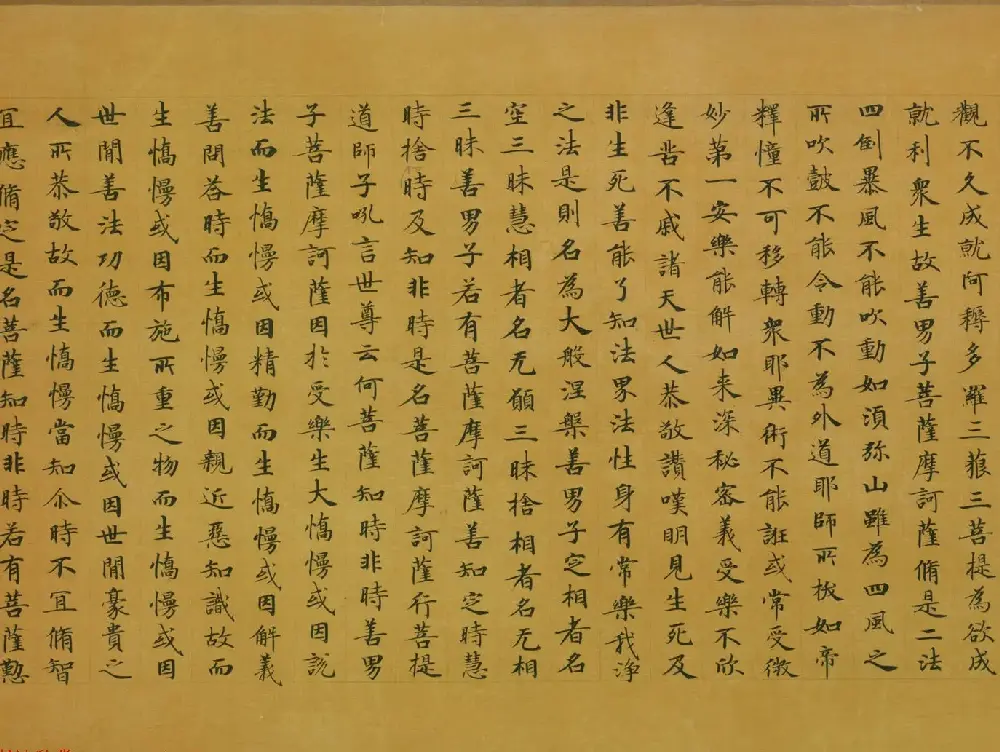 觀不久成就阿耨多羅三藐三菩提為欲成
就利衆生故善男子菩薩摩訶薩脩是二法
四倒暴風不能吹動如湏弥山雖為四風之
所吹鼓不能令動不為外道耶師所拔如帝
釋憧不可移轉衆耶異術不能誑或常受微
妙第一安樂能解如来深秘密義受樂不欣
逢苦不戚諸天世人恭敬讚嘆明見生死及
非生死善能了知法界法性身有常樂我淨
之法是則名為大般涅槃善男子定相者名
空三昧慧相者名无願三昧捨相者名无相
三昧善男子若有菩薩摩訶薩善知定時慧
時捨時及知非時是名菩薩摩訶薩行菩提
道師子吼言世尊云何菩薩知時非時善男
子菩薩摩訶薩因於受樂生大憍慢或因說
法而生憍慢或因精勤而生憍慢或因解義
善問荅時而生憍慢或因親近惡知識故而
生憍慢或因布施所重之物而生憍慢或因
世間善法功德而生憍慢或因世間豪貴之
人所恭敬故而生憍慢當知尒時不冝脩智
冝應脩定是名菩薩知時非時若有菩薩懃